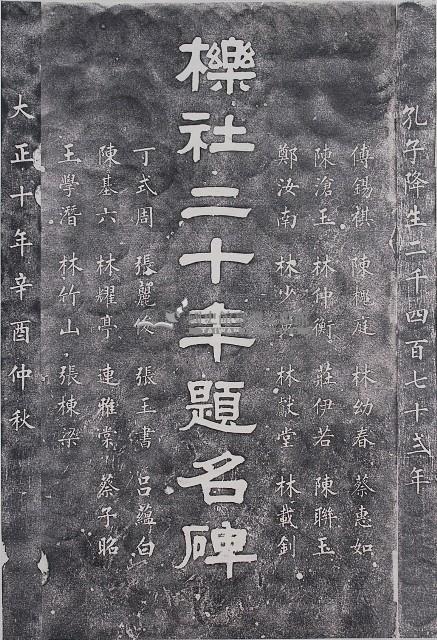 孔子降生二千四百七十二年
傅錫祺　陳槐庭　林幼春　蔡惠如
陳滄玉　林仲衡　莊伊若　陳聯玉
鄭汝南　林少英　林獻堂　林載釗
櫟社二十年題名碑
丁式周　張麗俊　張玉書　呂蘊白
陳基六　林耀亭　連雅棠　蔡子昭
王學潛　林竹山　張棟梁
大正十年辛酉仲秋